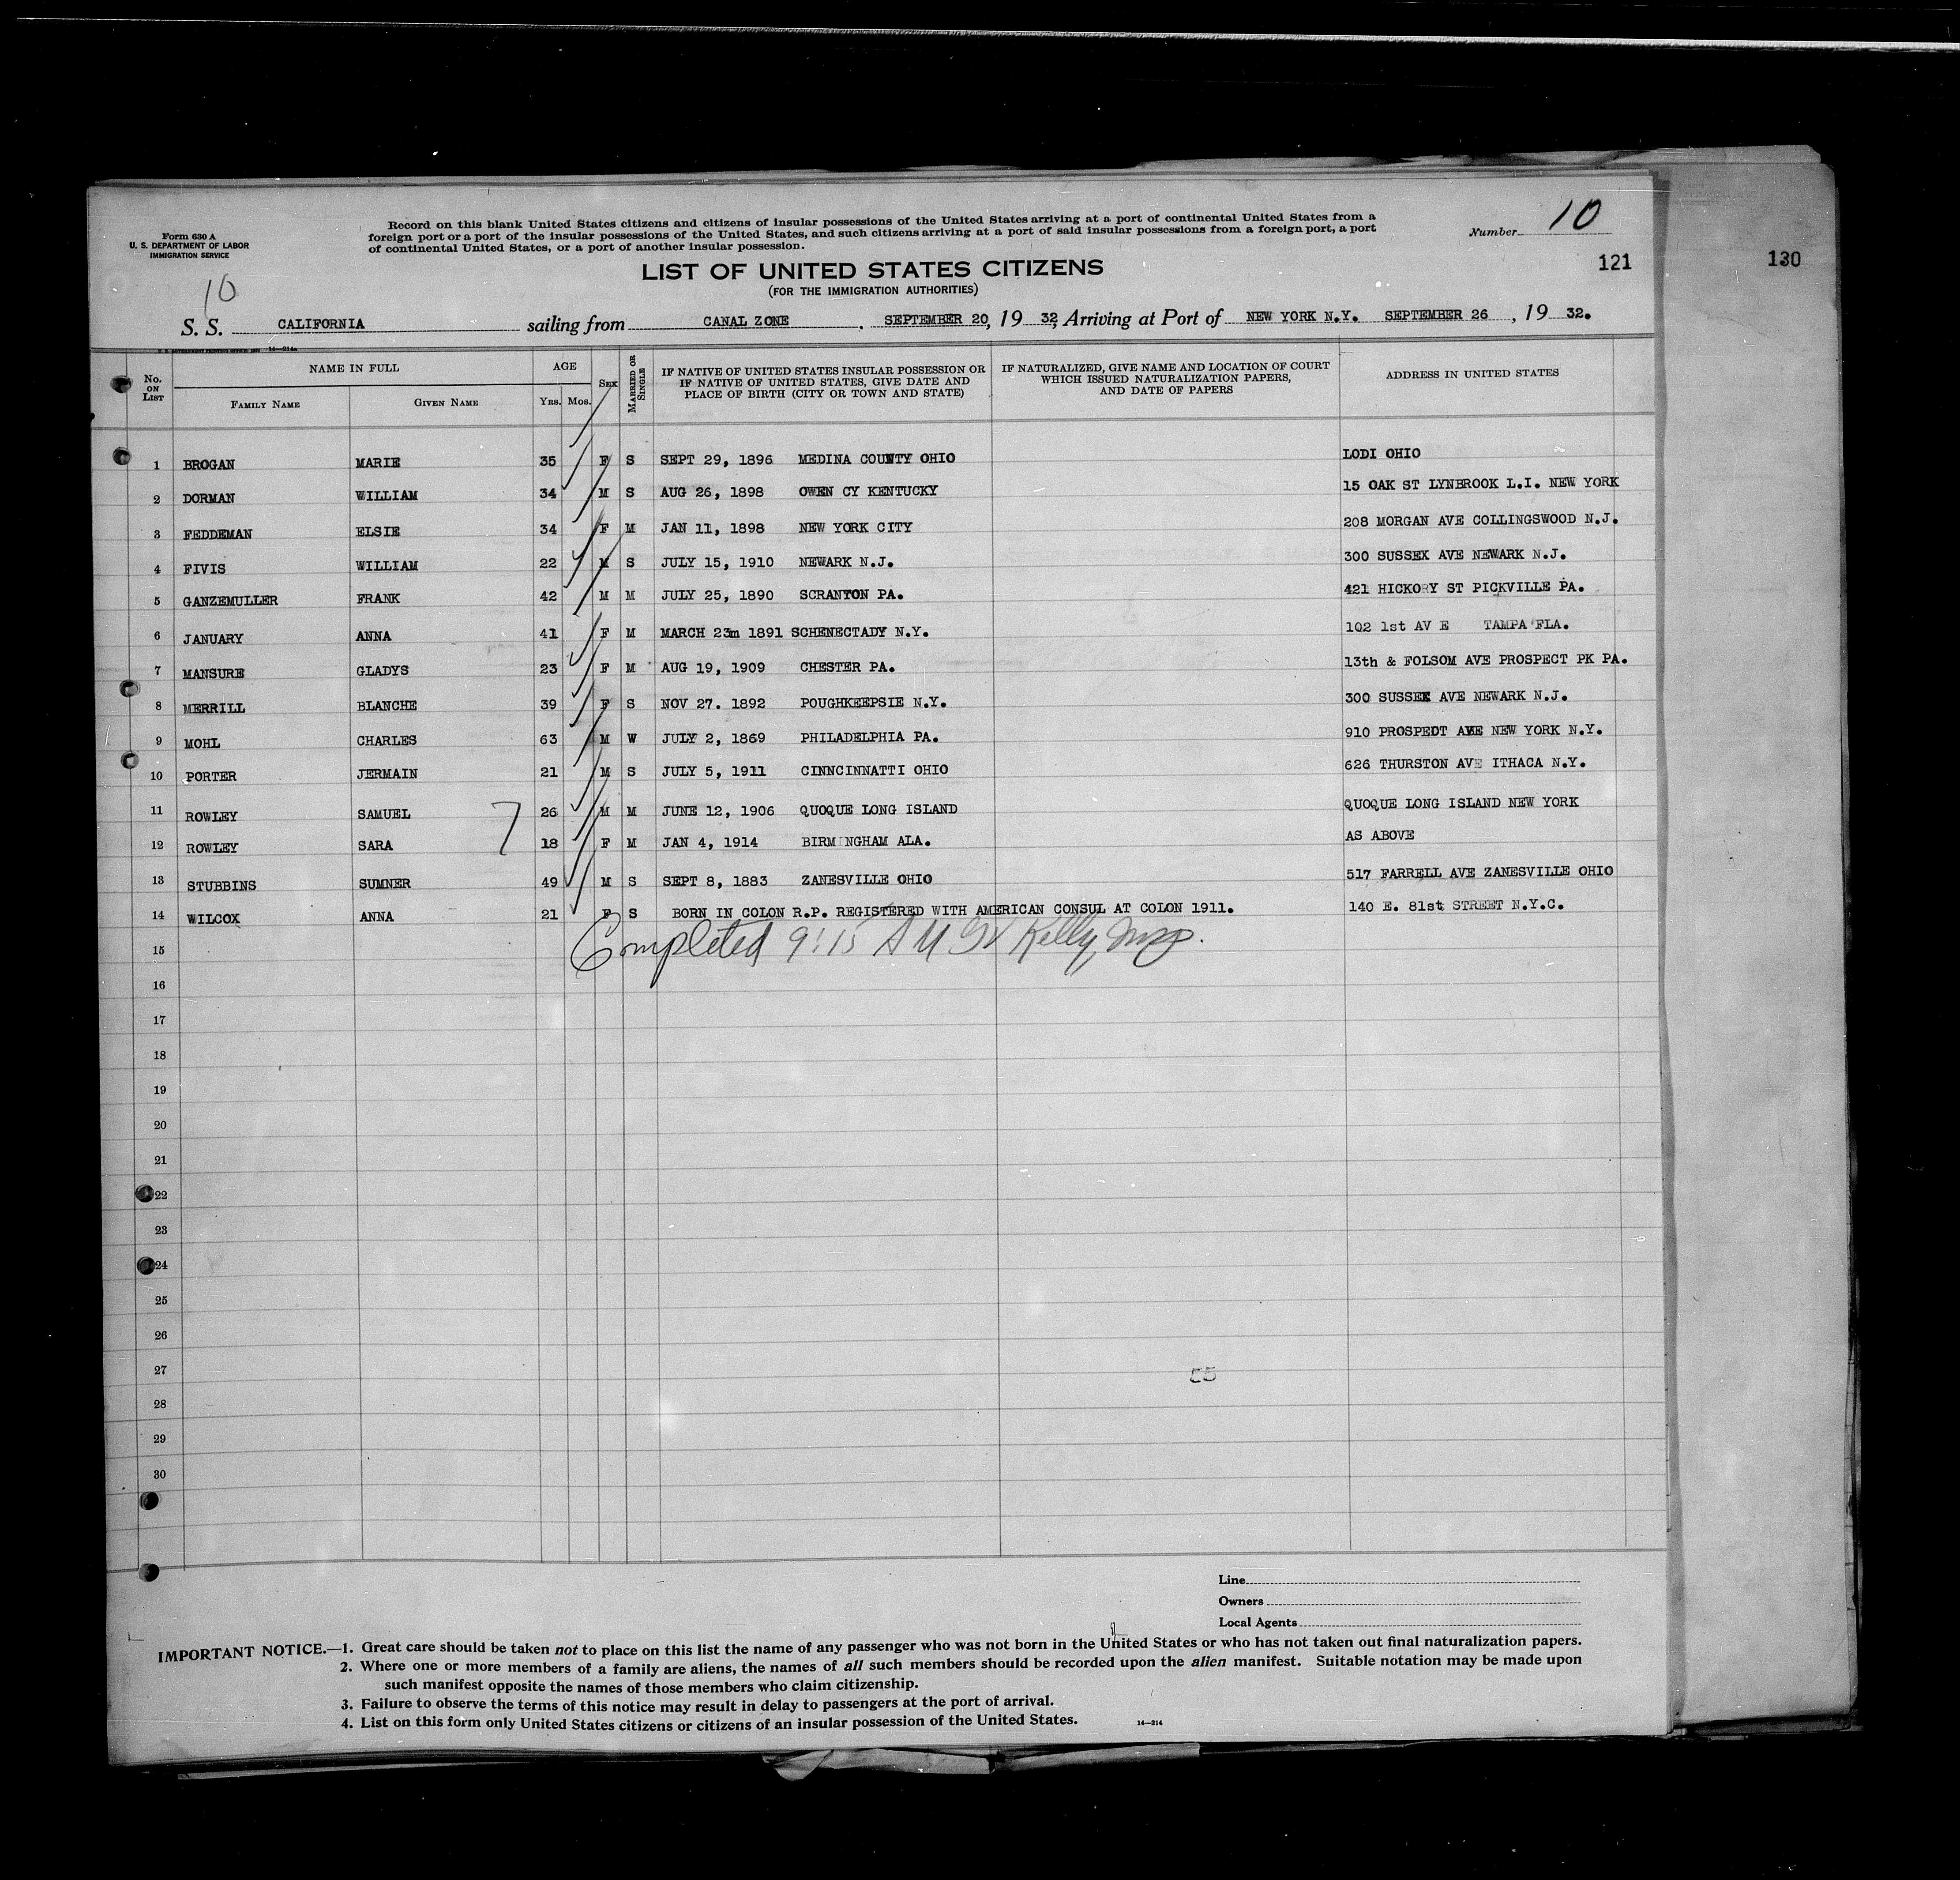 Form 630 A
U. S. DEPARTMENT OF LABOR
IMMIGRATION SERVICE
Record on this blank United States citizens and citizens of insular possessions of the United States arriving at a port of continental United States from a
foreign port or a port of the insular possessions of the United States, and such citizens arriving at a port of said insular possessions from a foreign port, a port
of continental United States, or a port of another insular possession.
Number 10
LIST OF UNITED STATES CITIZENS
121
130
(FOR THE IMMIGRATION AUTHORITIES)
10
S. S. CALIFORNIA sailing from CANAL ZONE . SEPTEMBER 20, 19 32, Arriving at Port of NEW YORK N.Y. SEPTEMBER 26 , 19 32.
14—214a
No. ON LIST
NAME IN FULL
FAMILY NAME GIVEN NAME
AGE
YRS. MOS.
SEX
MARRIED OR SINGLE
IF NATIVE OF UNITED STATES INSULAR POSSESSION OR
IF NATIVE OF UNITED STATES, GIVE DATE AND
PLACE OF BIRTH (CITY OR TOWN AND STATE)
IF NATURALIZED, GIVE NAME AND LOCATION OF COURT
WHICH ISSUED NATURALIZATION PAPERS,
AND DATE OF PAPERS
ADDRESS IN UNITED STATES
1 BROGAN MARIE 35 F S SEPT 29, 1896 MEDINA COUNTY OHIO LODI OHIO
2 DORMAN WILLIAM 34 M S AUG 26, 1898 OWEN CY KENTUCKY 15 OAK ST LYNBROOK L.I. NEW YORK
3 FEDDEMAN ELSIE 34 F M JAN 11, 1898 NEW YORK CITY 208 MORGAN AVE COLLINGSWOOD N.J.
4 FIVIS WILLIAM 22 M S JULY 15, 1910 NEWARK N.J. 300 SUSSEX AVE NEWARK N.J.
5 GANZEMULLER FRANK 42 M M JULY 25, 1890 SCRANTON PA. 421 HICKORY ST PICKVILLE PA.
6 JANUARY ANNA 41 F M MARCH 23m 1891 SCHENECTADY N.Y. 102 1st AV E TAMPA FLA.
7 MANSURE GLADYS 23 F M AUG 19, 1909 CHESTER PA. 13th & FOLSOM AVE PROSPECT PK PA.
8 MERRILL BLANCHE 39 F S NOV 27. 1892 POUGHKEEPSIE N.Y. 300 SUSSEX AVE NEWARK N.J.
9 MOHL CHARLES 63 M W JULY 2, 1869 PHILADELPHIA PA. 910 PROSPECT AVE NEW YORK N.Y.
10 PORTER JERMAIN 21 M S JULY 5, 1911 CINNCINNATTI OHIO 626 THURSTON AVE ITHACA N.Y.
11 ROWLEY SAMUEL 26 M M JUNE 12, 1906 QUOQUE LONG ISLAND QUOQUE LONG ISLAND NEW YORK
12 ROWLEY SARA 18 F M JAN 4, 1914 BIRMINGHAM ALA. AS ABOVE
13 STUBBINS SUMNER 49 M S SEPT 8, 1883 ZANESVILLE OHIO 517 FARRELL AVE ZANESVILLE OHIO
14 WILCOX ANNA 21 F S BORN IN COLON R.P. REGISTERED WITH AMERICAN CONSUL AT COLON 1911. 140 E. 81st STREET N.Y.C.
15 Completed 9:15 AM Kelly, Insp.
16
17
18
19
20
21
22
23
24
25
26
27
28
29
30
Line
Owners
Local Agents
IMPORTANT NOTICE.—1. Great care should be taken not to place on this list the name of any passenger who was not born in the United States or who has not taken out final naturalization papers.
2. Where one or more members of a family are aliens, the names of all such members should be recorded upon the alien manifest. Suitable notation may be made upon
such manifest opposite the names of those members who claim citizenship.
3. Failure to observe the terms of this notice may result in delay to passengers at the port of arrival.
4. List on this form only United States citizens or citizens of an insular possession of the United States.
14—214